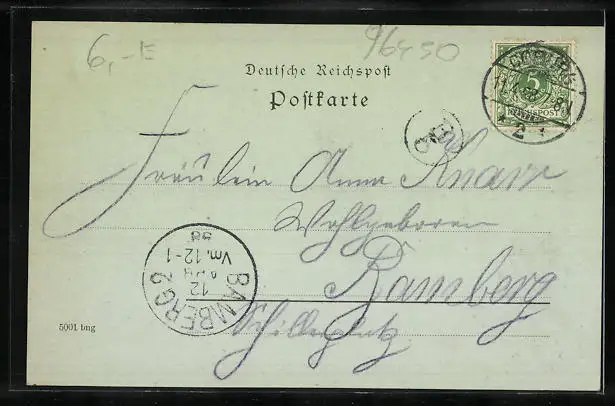 6,-E
96450
Deutsche Reichspost
Postkarte
5
REICHSPOST
COBURG
2
Fräulein Anna Knarr
Wohlgeboren
Bamberg
Schillerplatz
BAMBERG 2
12
Vm. 12-1
98
5001 bng